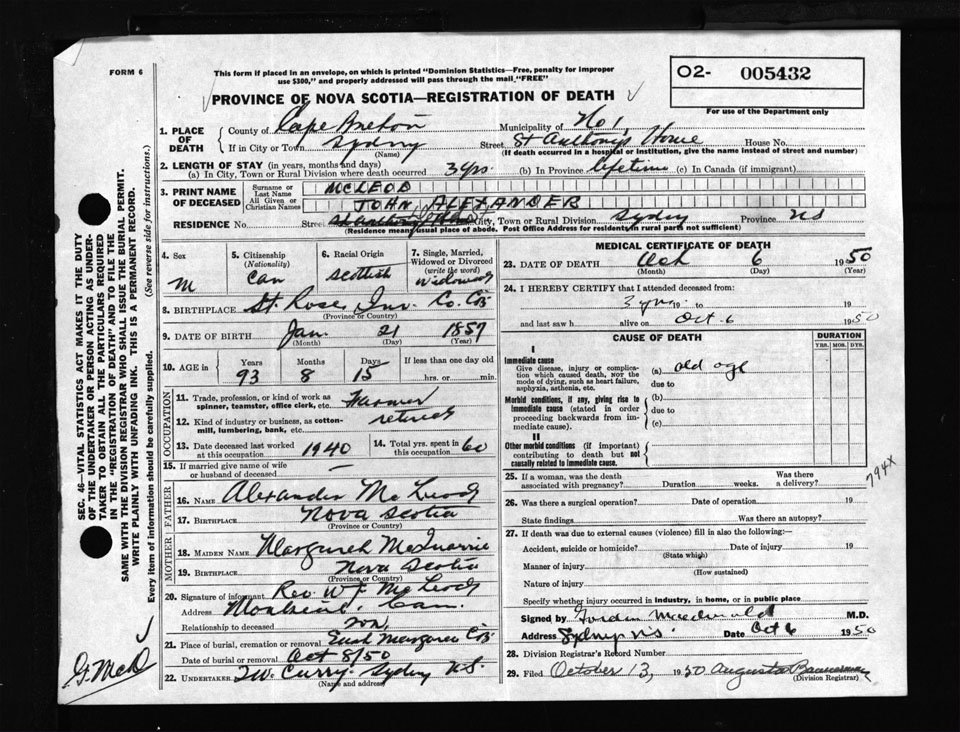 FORM 6
This form if placed in an envelope, on which is printed "Dominion Statistics—Free, penalty for improper
use $300," and properly addressed will pass through the mail "FREE"
PROVINCE OF NOVA SCOTIA—REGISTRATION OF DEATH
O2- 005432
For use of the Department only
1. PLACE OF DEATH
County of Cape Breton Municipality of No 1
If in City or Town Sydney Street St Anthony Home House No.
(Name) (If death occurred in a hospital or institution, give the name instead of street and number)
2. LENGTH OF STAY (in years, months and days)
(a) In City, Town or Rural Division where death occurred 3 yrs. (b) In Province lifetime (c) In Canada (if immigrant)
3. PRINT NAME OF DECEASED
Surname or Last Name MCLEOD
All Given or Christian Names JOHN, ALEXANDER
RESIDENCE No. Street City, Town or Rural Division Sydney Province NS
(Residence means usual place of abode. Post Office Address for residents in rural parts not sufficient)
4. Sex M
5. Citizenship (Nationality) Can
6. Racial Origin Scottish
7. Single, Married, Widowed or Divorced (write the word) Widowed
8. BIRTHPLACE St. Rose, Inv. Co. CB
(Province or Country)
9. DATE OF BIRTH Jan. 21 1857
(Month) (Day) (Year)
10. AGE in Years 93 Months 8 Days 15 If less than one day old hrs. or min.
OCCUPATION
11. Trade, profession, or kind of work as spinner, teamster, office clerk, etc. Farmer
12. Kind of industry or business, as cotton-mill, lumbering, bank, etc. retired
13. Date deceased last worked at this occupation 1940 14. Total yrs. spent in this occupation 60
15. If married give name of wife or husband of deceased —
FATHER
16. NAME Alexander McLeod
17. BIRTHPLACE Nova Scotia
(Province or Country)
MOTHER
18. MAIDEN NAME Margaret McQuarrie
19. BIRTHPLACE Nova Scotia
(Province or Country)
20. Signature of informant Rev. W J McLeod
Address Montreal, Can.
Relationship to deceased son,
21. Place of burial, cremation or removal East Margaree CB
Date of burial or removal Oct 8/50
22. UNDERTAKER T.W. Curry. Sydney N.S.
(Name and address)
MEDICAL CERTIFICATE OF DEATH
23. DATE OF DEATH Oct 6 1950
(Month) (Day) (Year)
24. I HEREBY CERTIFY that I attended deceased from:
3 yrs 19 to 19
and last saw h alive on Oct. 6 1950
CAUSE OF DEATH
DURATION
YRS. MOS. DYS.
I
Immediate cause
Give disease, injury or complication which caused death, NOT the mode of dying, such as heart failure, asphyxia, asthenia, etc.
(a) old age
due to
Morbid conditions, if any, giving rise to immediate cause (stated in order proceeding backwards from immediate cause).
(b)
due to
(c)
II
Other morbid conditions (if important) contributing to death but not causally related to immediate cause.
794X
25. If a woman, was the death associated with pregnancy? Duration weeks. Was there a delivery?
26. Was there a surgical operation? Date of operation 19
State findings Was there an autopsy?
27. If death was due to external causes (violence) fill in also the following:
Accident, suicide or homicide? Date of injury 19
(State which)
Manner of injury
(How sustained)
Nature of injury
Specify whether injury occurred in industry, in home, or in public place
Signed by Gordon Macdonald M.D.
Address Sydney N.S. Date Oct 6 1950
28. Division Registrar's Record Number
29. Filed October 13, 1950 Augusta
(Division Registrar)
SEC. 46—VITAL STATISTICS ACT MAKES IT THE DUTY
OF THE UNDERTAKER OR PERSON ACTING AS UNDER-
TAKER TO OBTAIN ALL THE PARTICULARS REQUIRED
IN THE "REGISTRATION OF DEATH" AND TO FILE THE
SAME WITH THE DIVISION REGISTRAR WHO SHALL ISSUE THE BURIAL PERMIT.
WRITE PLAINLY WITH UNFADING INK. THIS IS A PERMANENT RECORD.
Every item of information should be carefully supplied. (See reverse side for instructions.)
G. McD